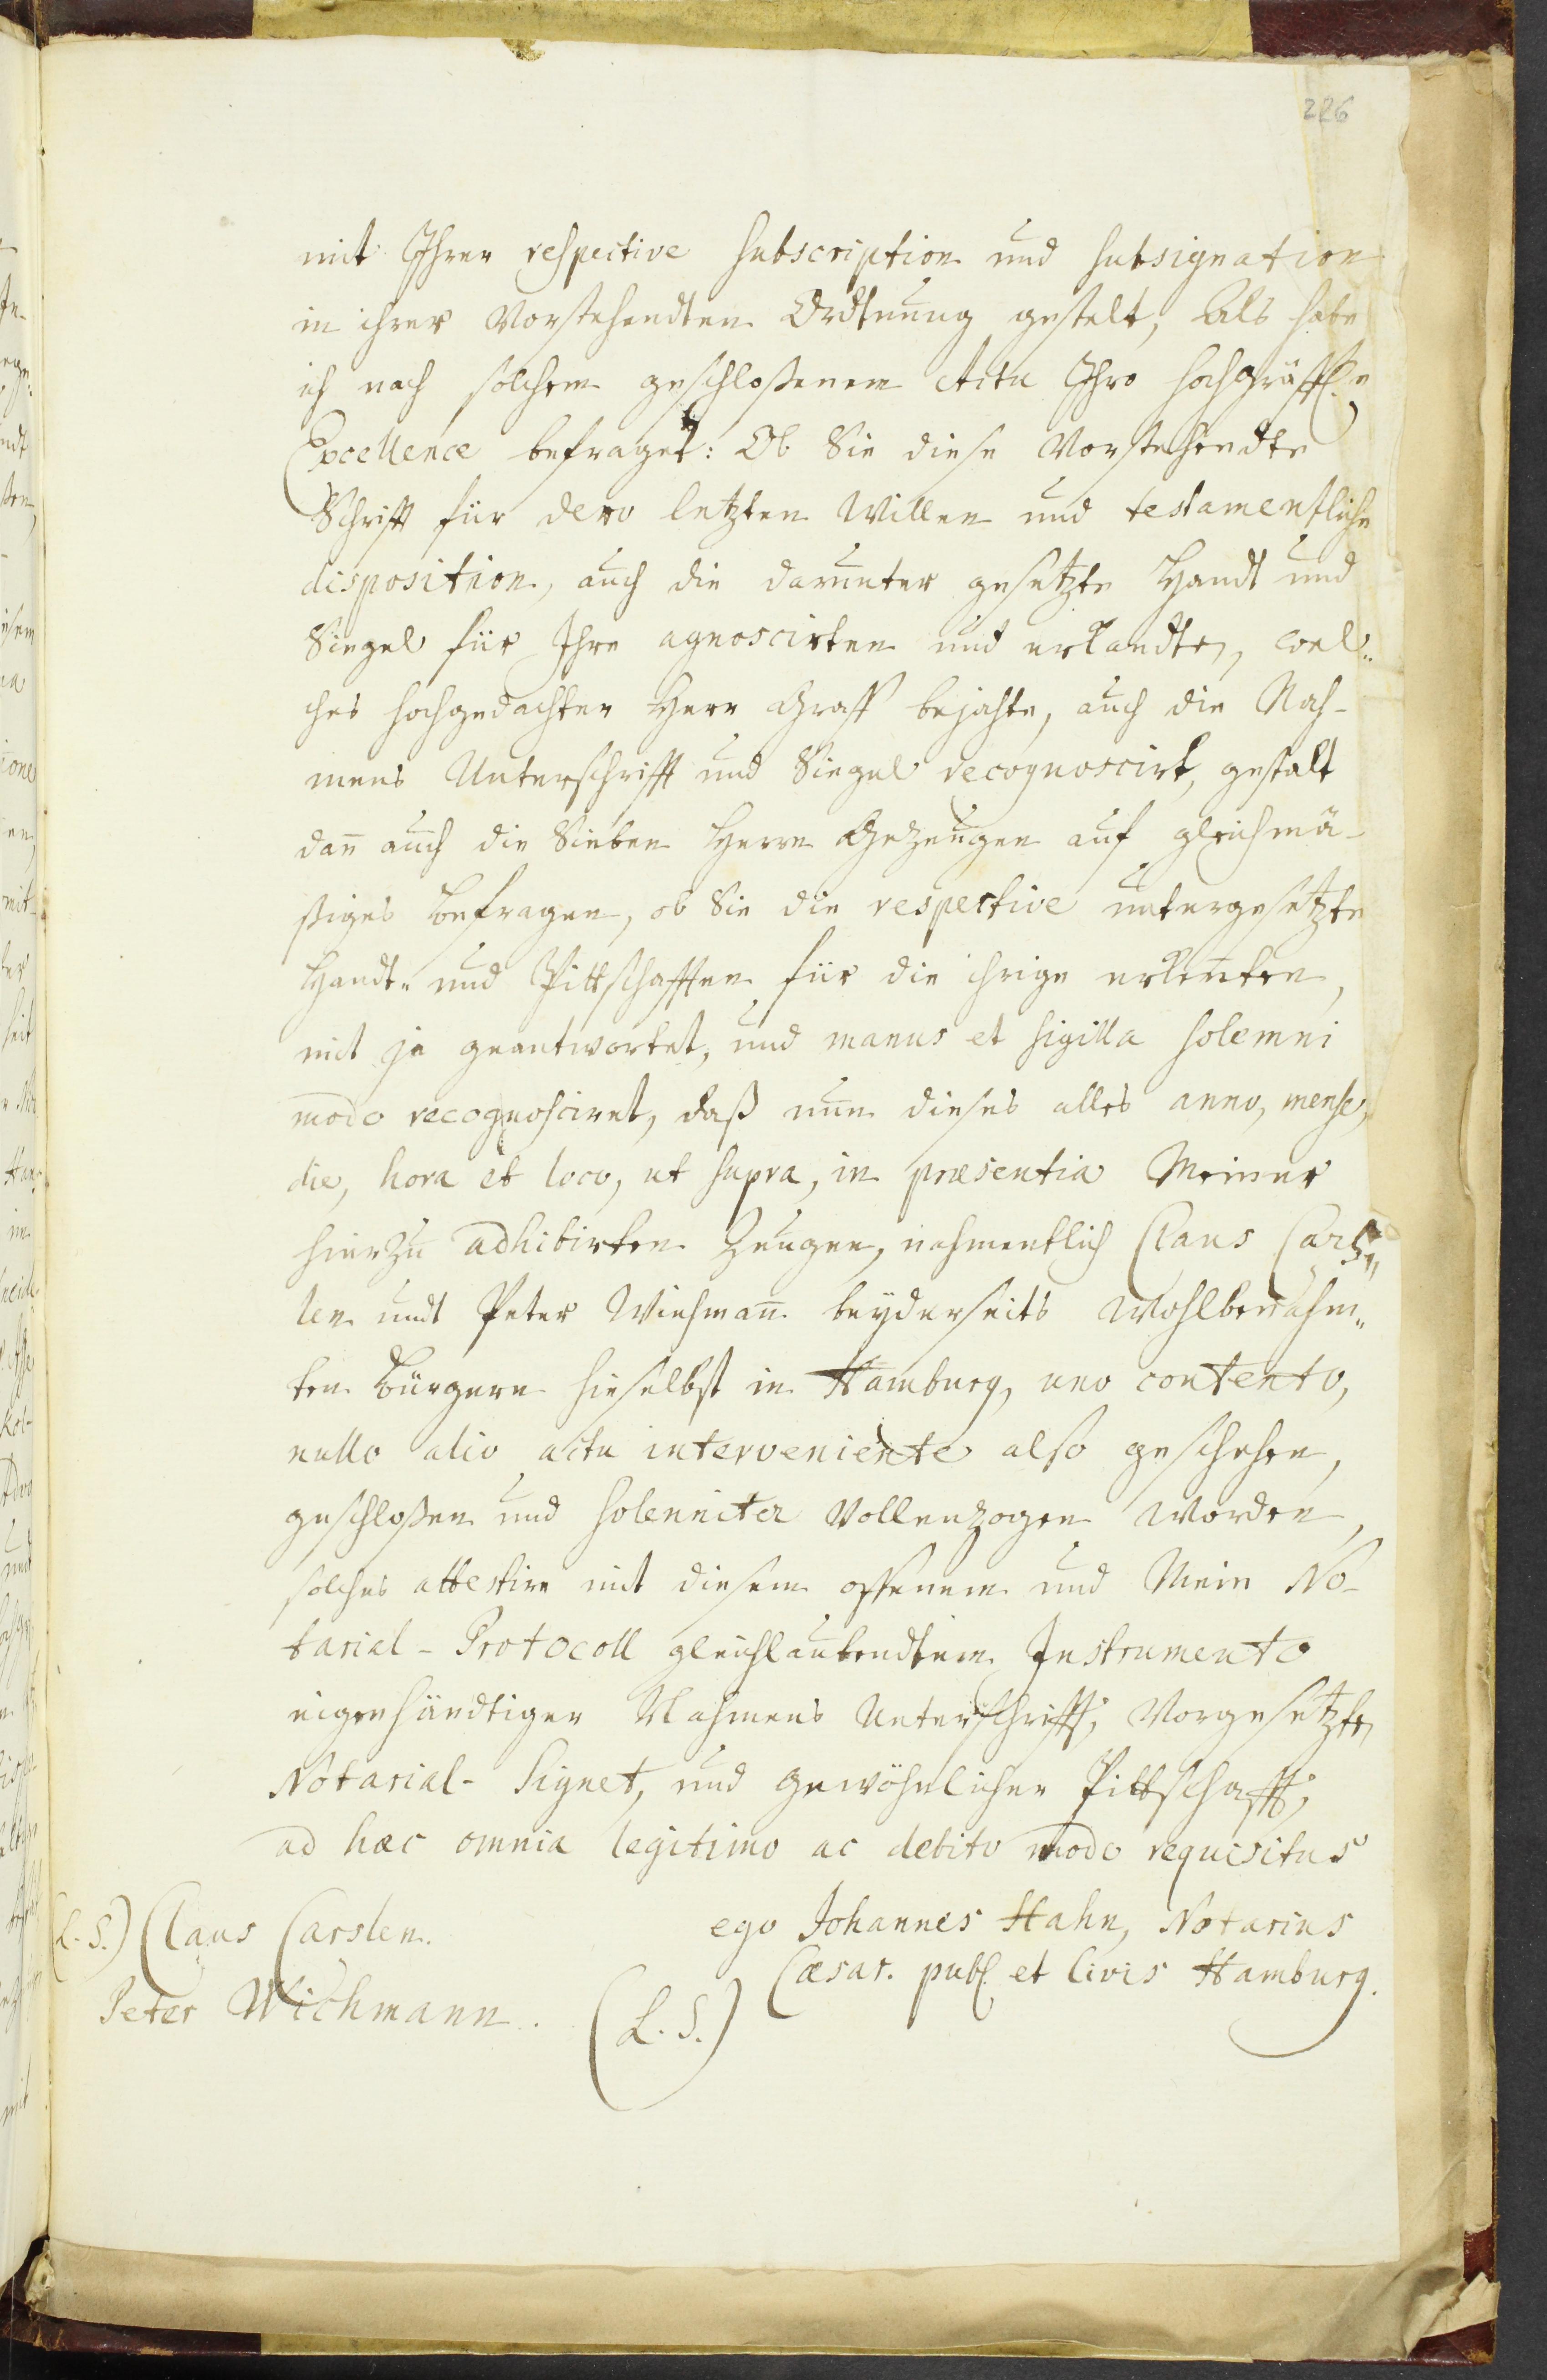 226
mit Ihrer respective subscription und subsignation
in ihrer Vorstehendten Ordtnung gestelt, Als habe
ich nach solchem geschloßenem Actu Ihro hochgräffl.e
Excellence befraget: Ob Sie diese Vorstehendte
Schrifft für dero letzten Willen und testamentliche
disposition, auch die darunter gesetzte Handt und
Siegel für Ihre agnoscirten und erkandten, wel„
ches hochgedachter Herr Graff bejahte, auch die Nah-
mens Unterschrifft und Siegel recognoscirt, gestalt
dañ auch die Sieben Herrn Gezeugen auf gleichmä-
ßiges Befragen, ob Sie die respective untergesetzte
Handt- und Pittschafften für die ihrige erkenten,
mit ja geantwortet, und manus et sigilla solemni
modo recognosciret, daß nun dieses alles anno, mense,
die, hora et loco, ut supra, in præsentia Meiner
hierzu adhibirten Zeugen, nahmentlich Claus Cars„
len undt Peter Wichmañ beyderseits Wohlbenahm„
ten Bürgern hieselbst in Hamburg, uno contento,
nullo alio actu interveniente also geschehen,
geschloßen und solenniter Vollenzogen worden,
solches attestire mit diesem offenem und Mein No-
tarial-Protocoll gleichlautendtem Instrumento
eigenhändtiger Nahmens Unterschrifft, Vorgesetzten
Notarial-Signet, und gewöhnlicher Pittschafft,
ad hæc omnia legitimo ac debito modo requisitus
ego Johannes Hahn, Notarius
Cæsar. publ. et Civis Hamburg.
(L.S.)
(L.S.) Claus Carslen.
Peter Wichmann.